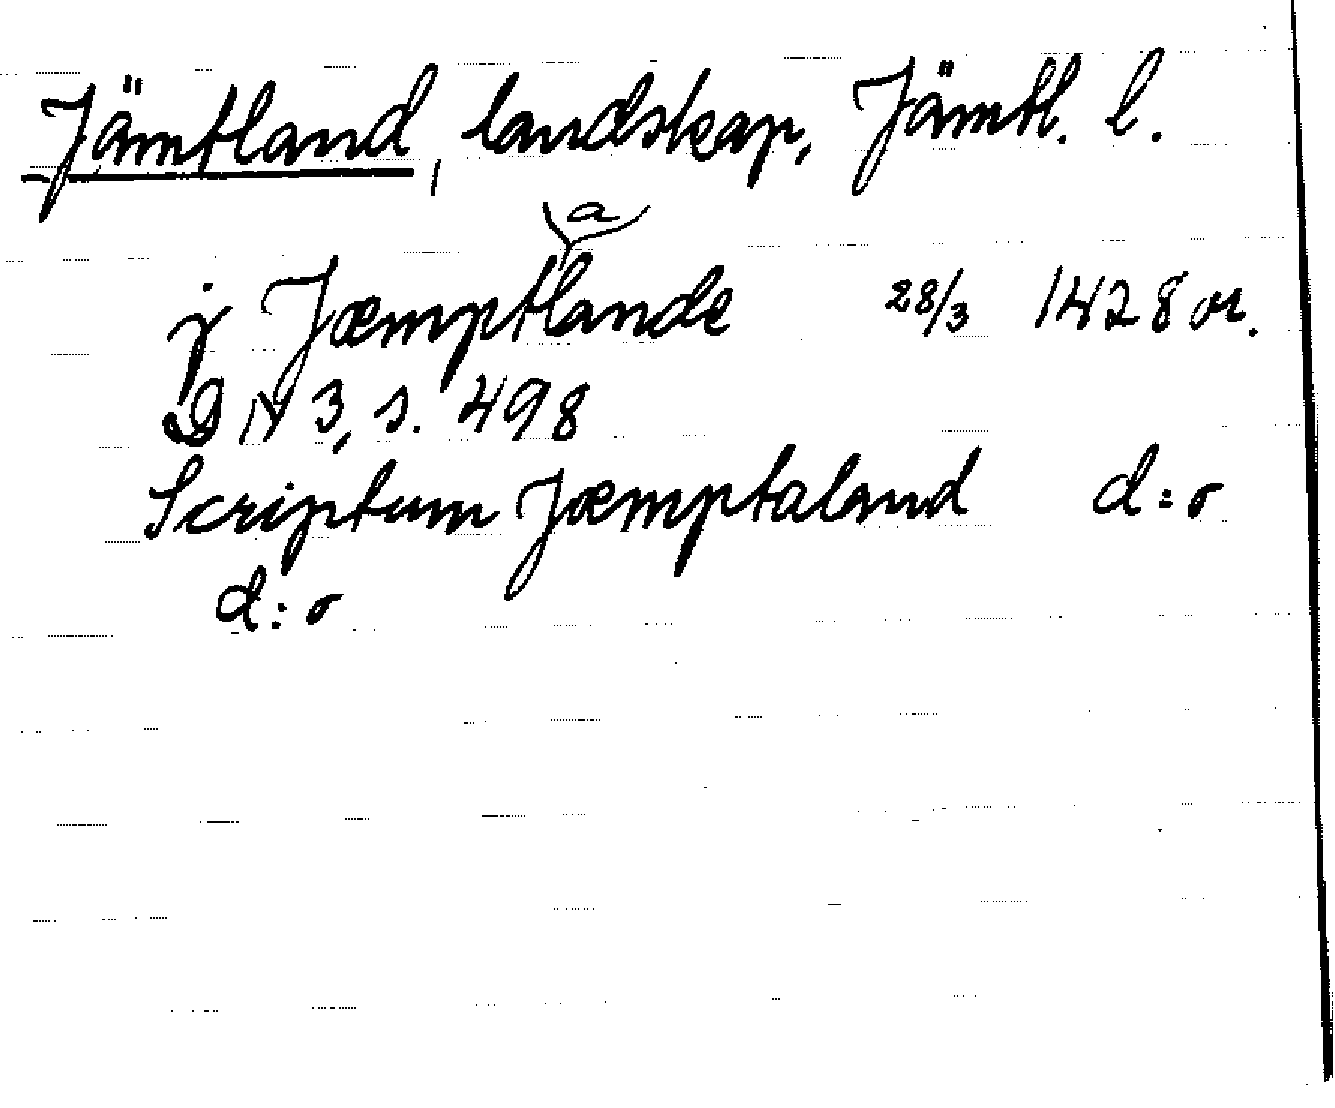 Jämtland, landskap, Jämtl. l.
a
j Jæmptlande 28/3 1428 or.
DN 3, s. 498
Scriptum Jæmptaland d:o
d:o